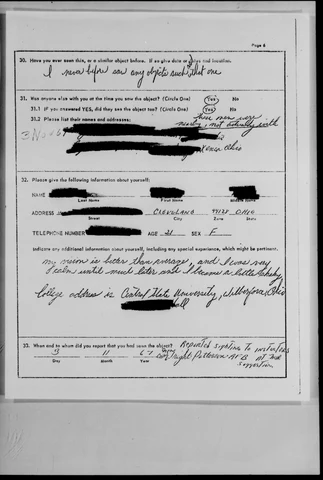 Page 6
30. Have you ever seen this, or a similar object before. If so give date or dates and location.
I never before saw any objects such that one
31. Was anyone else with you at the time you saw the object? (Circle One) Yes No
31.1 If you answered YES, did they see the object too? (Circle One) Yes No
31.2 Please list their names and addresses: two men were
nearby, not actually with
Ohio
32. Please give the following information about yourself:
NAME
Last Name First Name Middle Name
ADDRESS CLEVELAND OHIO
Street City Zone State
TELEPHONE NUMBER AGE 21 SEX F
Indicate any additional information about yourself, including any special experience, which might be pertinent.
my vision is better than average, and I was very
calm until much later and I became a little shaky
College address is Central State University, Wilberforce, Ohio
Hall
33. When and to whom did you report that you had seen the object? Reported sighting to instructors
3 11 67 Wright Patterson AFB At their
Day Month Year suggestion